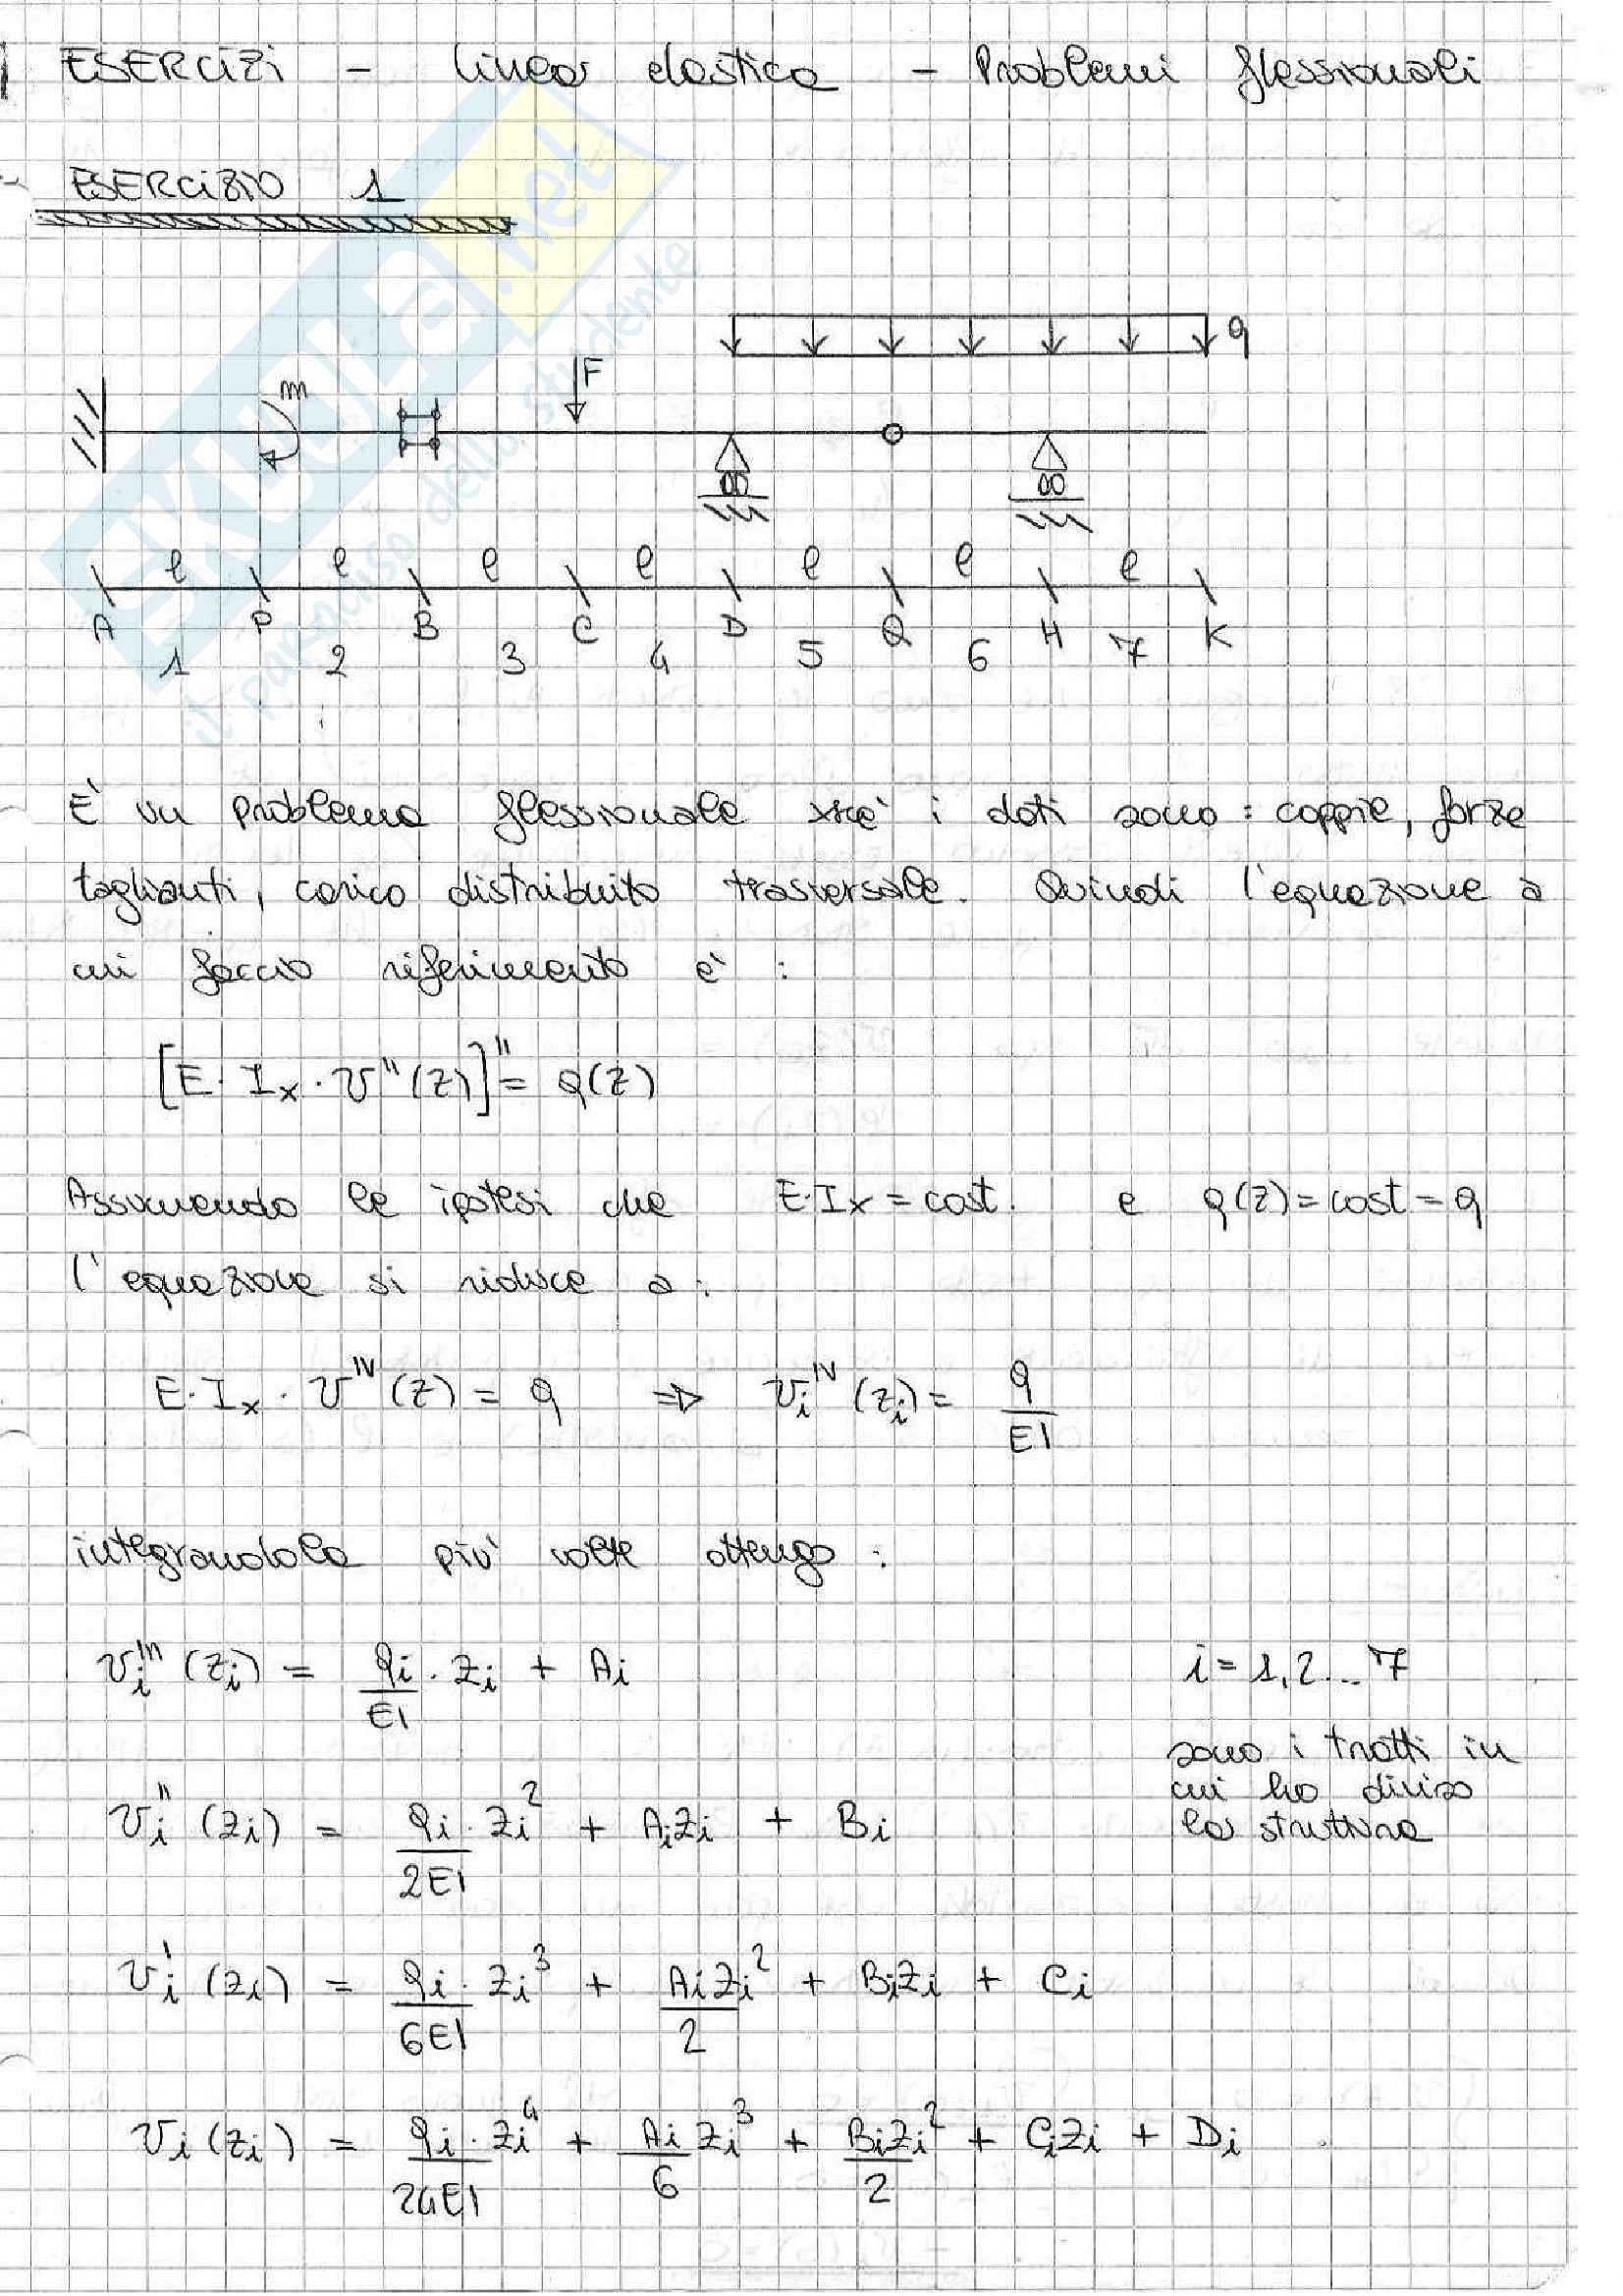 ESERCIZI - linea elastica - Problemi flessionali
ESERCIZIO 1
SKUOLA.net
il paradiso dello studente
q
m
F
l l l l l l l
A P B C D Q H K
1 2 3 4 5 6 7
È un problema flessionale xké i dati sono: coppie, forze
taglianti, carico distribuito trasversale. Quindi l'equazione a
cui faccio riferimento è:
[E·Ix·v''(z)]'' = q(z)
Assumendo le ipotesi che E·Ix = cost. e q(z) = cost = q
l'equazione si riduce a:
E·Ix·v^IV(z) = q ⇒ vi^IV(zi) = q/EI
integrandola più volte ottengo:
vi'''(zi) = qi/EI · zi + Ai i = 1,2... 7
sono i tratti in
cui ho diviso
la struttura
vi''(zi) = qi/2EI · zi² + Aizi + Bi
vi'(zi) = qi/6EI · zi³ + Aizi²/2 + Bizi + Ci
vi(zi) = qi/24EI · zi⁴ + Ai/6 zi³ + Bizi²/2 + Cizi + Di